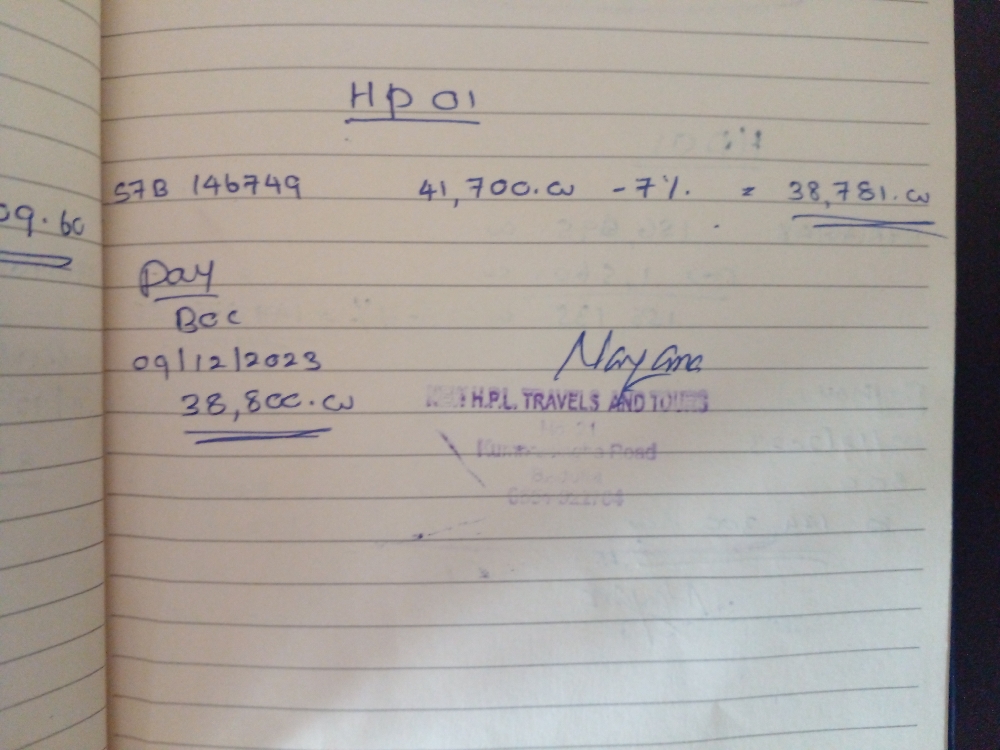 HP 01
S7B 146749 41,700.00 - 7% = 38,781.00
09.60
Pay
BOC
09/12/2023
38,800.00
Nayana
H.P.L. TRAVELS AND TOURS
Road